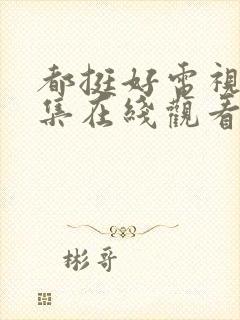 都挺好電視
集在綫觀看
彬哥